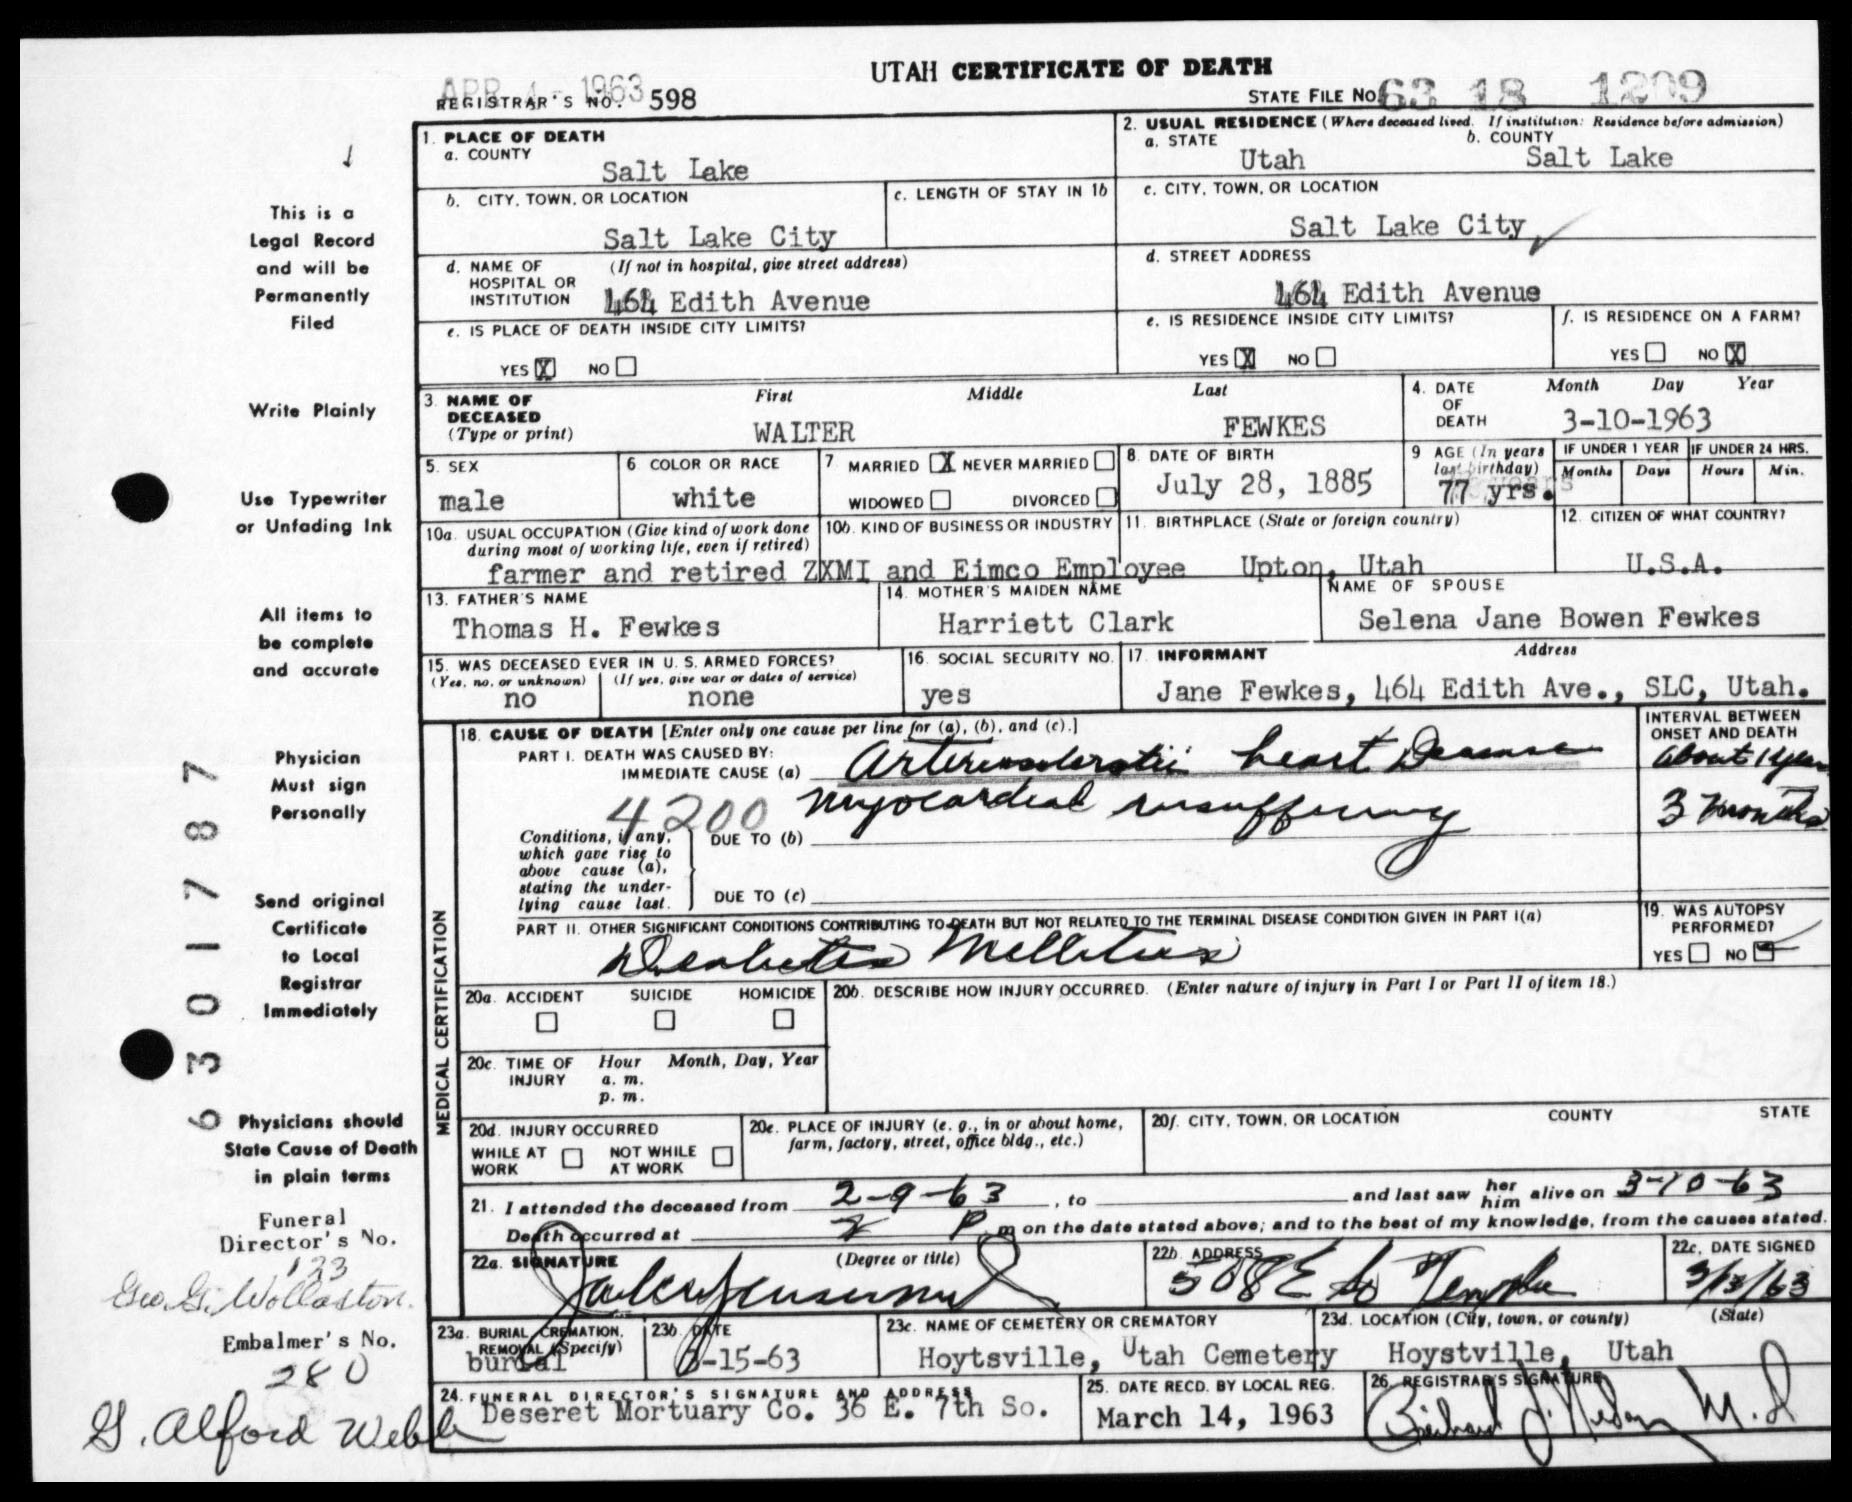 UTAH CERTIFICATE OF DEATH
APR 4 - 1963
REGISTRAR'S NO. 598
STATE FILE NO. 63 18 1209
1. PLACE OF DEATH
a. COUNTY
Salt Lake
2. USUAL RESIDENCE (Where deceased lived. If institution: Residence before admission)
a. STATE
Utah
b. COUNTY
Salt Lake
b. CITY, TOWN, OR LOCATION
Salt Lake City
c. LENGTH OF STAY IN 1b
c. CITY, TOWN, OR LOCATION
Salt Lake City
d. NAME OF HOSPITAL OR INSTITUTION
(If not in hospital, give street address)
464 Edith Avenue
d. STREET ADDRESS
464 Edith Avenue
e. IS PLACE OF DEATH INSIDE CITY LIMITS?
YES X NO
e. IS RESIDENCE INSIDE CITY LIMITS?
YES X NO
f. IS RESIDENCE ON A FARM?
YES NO X
3. NAME OF DECEASED
(Type or print)
First Middle Last
WALTER FEWKES
4. DATE OF DEATH
Month Day Year
3-10-1963
5. SEX
male
6 COLOR OR RACE
white
7 MARRIED X NEVER MARRIED
WIDOWED DIVORCED
8. DATE OF BIRTH
July 28, 1885
9 AGE (In years last birthday)
77 yrs.
IF UNDER 1 YEAR
Months Days
IF UNDER 24 HRS.
Hours Min.
10a. USUAL OCCUPATION (Give kind of work done during most of working life, even if retired)
10b. KIND OF BUSINESS OR INDUSTRY
farmer and retired ZXMI and Eimco Employee
11. BIRTHPLACE (State or foreign country)
Upton, Utah
12. CITIZEN OF WHAT COUNTRY?
U.S.A.
13. FATHER'S NAME
Thomas H. Fewkes
14. MOTHER'S MAIDEN NAME
Harriett Clark
NAME OF SPOUSE
Selena Jane Bowen Fewkes
15. WAS DECEASED EVER IN U. S. ARMED FORCES?
(Yes, no, or unknown) (If yes, give war or dates of service)
no none
16. SOCIAL SECURITY NO.
yes
17. INFORMANT Address
Jane Fewkes, 464 Edith Ave., SLC, Utah.
MEDICAL CERTIFICATION
18. CAUSE OF DEATH [Enter only one cause per line for (a), (b), and (c).]
INTERVAL BETWEEN ONSET AND DEATH
PART I. DEATH WAS CAUSED BY:
IMMEDIATE CAUSE (a) Arteriosclerotic heart Disease About 1 year
4200
Myocardial insufficiency 3 months
Conditions, if any, which gave rise to above cause (a), stating the underlying cause last.
DUE TO (b)
DUE TO (c)
PART II. OTHER SIGNIFICANT CONDITIONS CONTRIBUTING TO DEATH BUT NOT RELATED TO THE TERMINAL DISEASE CONDITION GIVEN IN PART I(a)
Diabetes Mellitus
19. WAS AUTOPSY PERFORMED?
YES NO
20a. ACCIDENT SUICIDE HOMICIDE
20b. DESCRIBE HOW INJURY OCCURRED. (Enter nature of injury in Part I or Part II of item 18.)
20c. TIME OF INJURY
Hour Month, Day, Year
a. m.
p. m.
20d. INJURY OCCURRED
WHILE AT WORK NOT WHILE AT WORK
20e. PLACE OF INJURY (e. g., in or about home, farm, factory, street, office bldg., etc.)
20f. CITY, TOWN, OR LOCATION COUNTY STATE
21. I attended the deceased from 2-9-63, to and last saw her him alive on 3-10-63
Death occurred at P. m on the date stated above; and to the best of my knowledge, from the causes stated.
22a. SIGNATURE (Degree or title)
22b. ADDRESS
508 E So Temple
22c. DATE SIGNED
3/13/63
23a. BURIAL, CREMATION, REMOVAL (Specify)
burial
23b. DATE
3-15-63
23c. NAME OF CEMETERY OR CREMATORY
Hoytsville, Utah Cemetery
23d. LOCATION (City, town, or county) (State)
Hoystville, Utah
24. FUNERAL DIRECTOR'S SIGNATURE AND ADDRESS
Deseret Mortuary Co. 36 E. 7th So.
25. DATE RECD. BY LOCAL REG.
March 14, 1963
26. REGISTRAR'S SIGNATURE
M.D
This is a
Legal Record
and will be
Permanently
Filed
Write Plainly
Use Typewriter
or Unfading Ink
All items to
be complete
and accurate
Physician
Must sign
Personally
Send original
Certificate
to Local
Registrar
Immediately
Physicians should
State Cause of Death
in plain terms
Funeral
Director's No.
133
Geo. G. Wollaston.
Embalmer's No.
280
G. Alford Webb
6301787